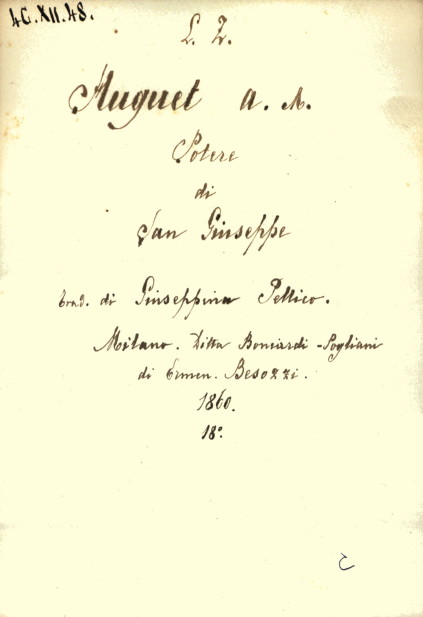 4C.XII.48.
L. Z.
Auguet A. M.
Potere
di
San Giuseppe
Trad. di Giuseppina Pellico.
Milano. Ditta Boniardi-Pogliani
di Ermen. Besozzi.
1860.
18°